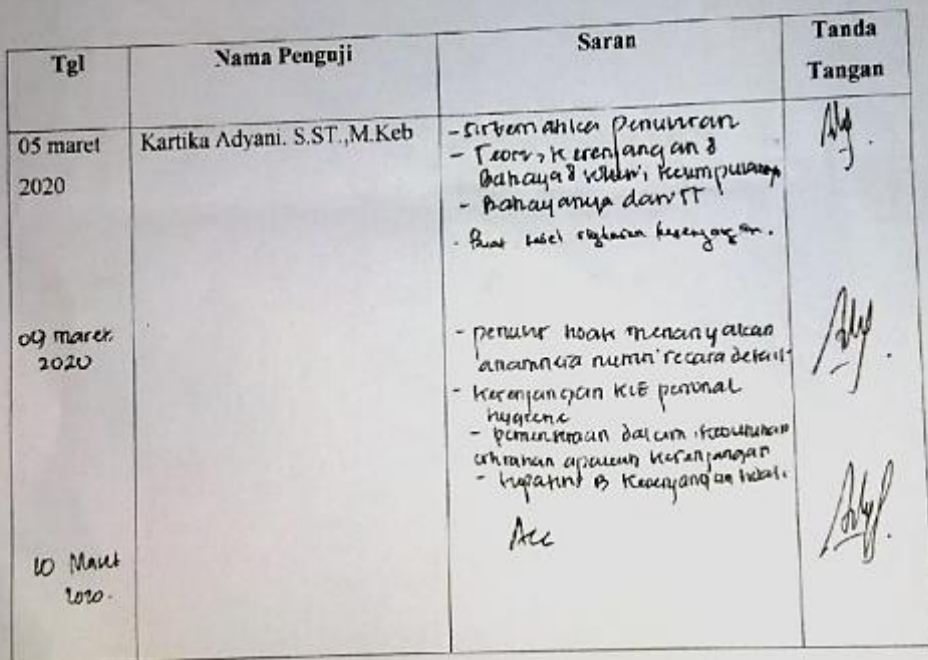 Tgl
Nama Penguji
Saran
Tanda
Tangan
05 maret
2020
Kartika Adyani. S.ST.,M.Keb
- Sistematika Penulisan
- Teori, Kesenjangan &
Bahaya &
- Bahayanya dari TT
- Buat tabel kesenjangan.
09 maret
2020
- penulis tidak menanyakan
anamnesa nutrisi secara detail
- Kesenjangan KIE personal
hygiene
- pemeriksaan dalam
apakah kesenjangan
- hepatitis B Kesenjangan
10 Maret
2020.
Acc